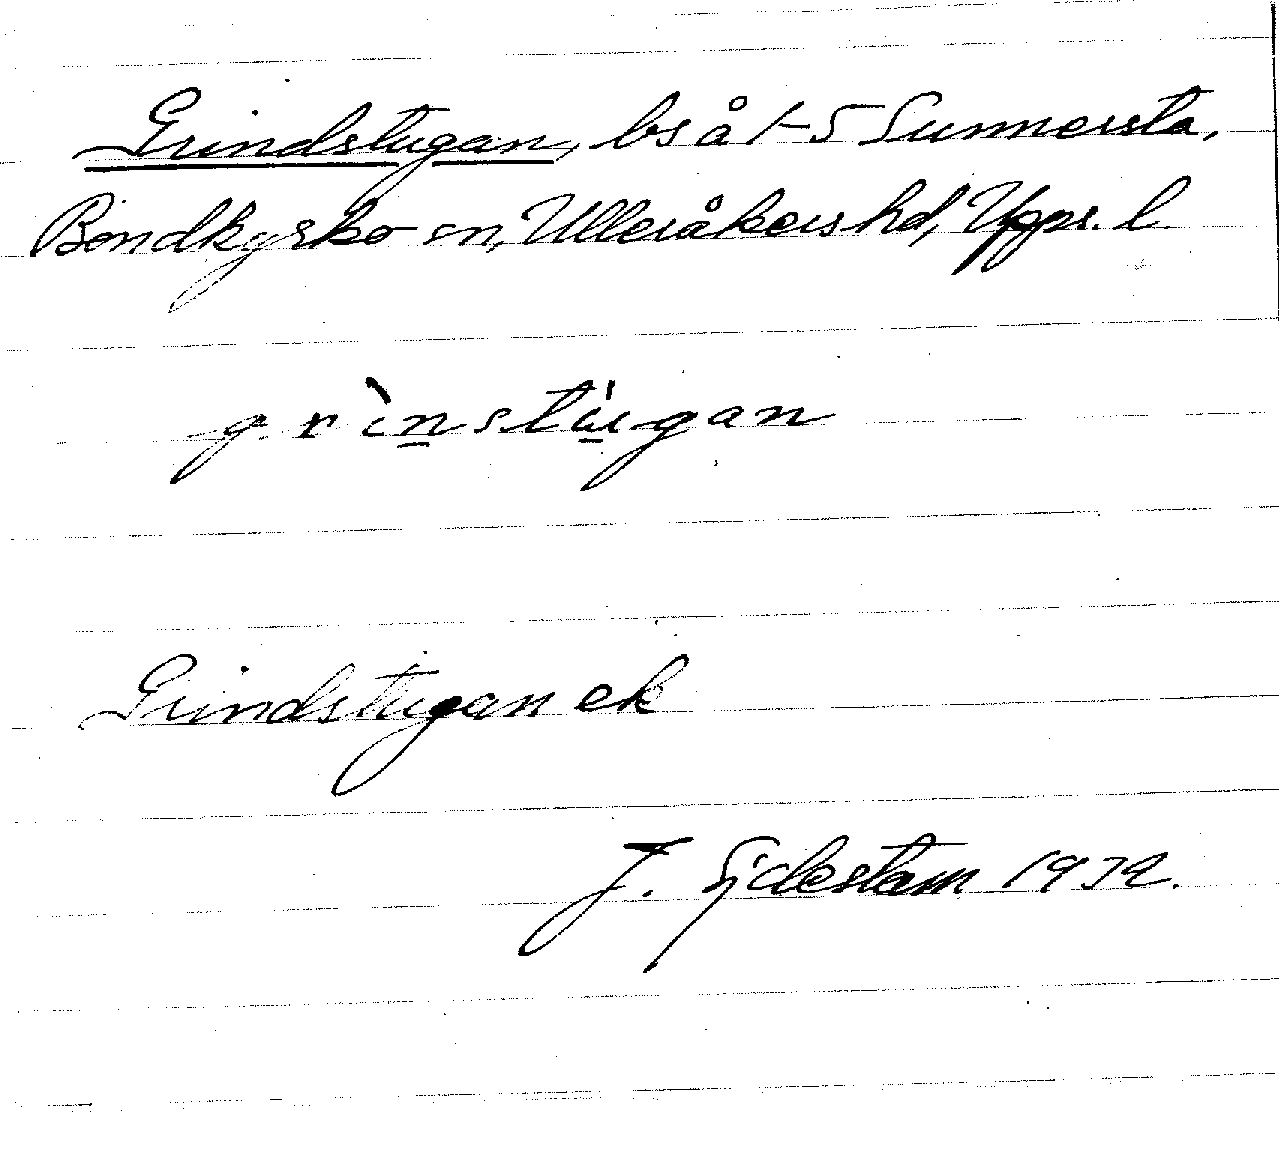 Grindstugan, bs å 1-5 Sunnersta,
Bondkyrko sn, Ulleråkers hd, Upps. l.
grìnstu̇gan
Grindstugan ek
J. Sjdestam 1932.